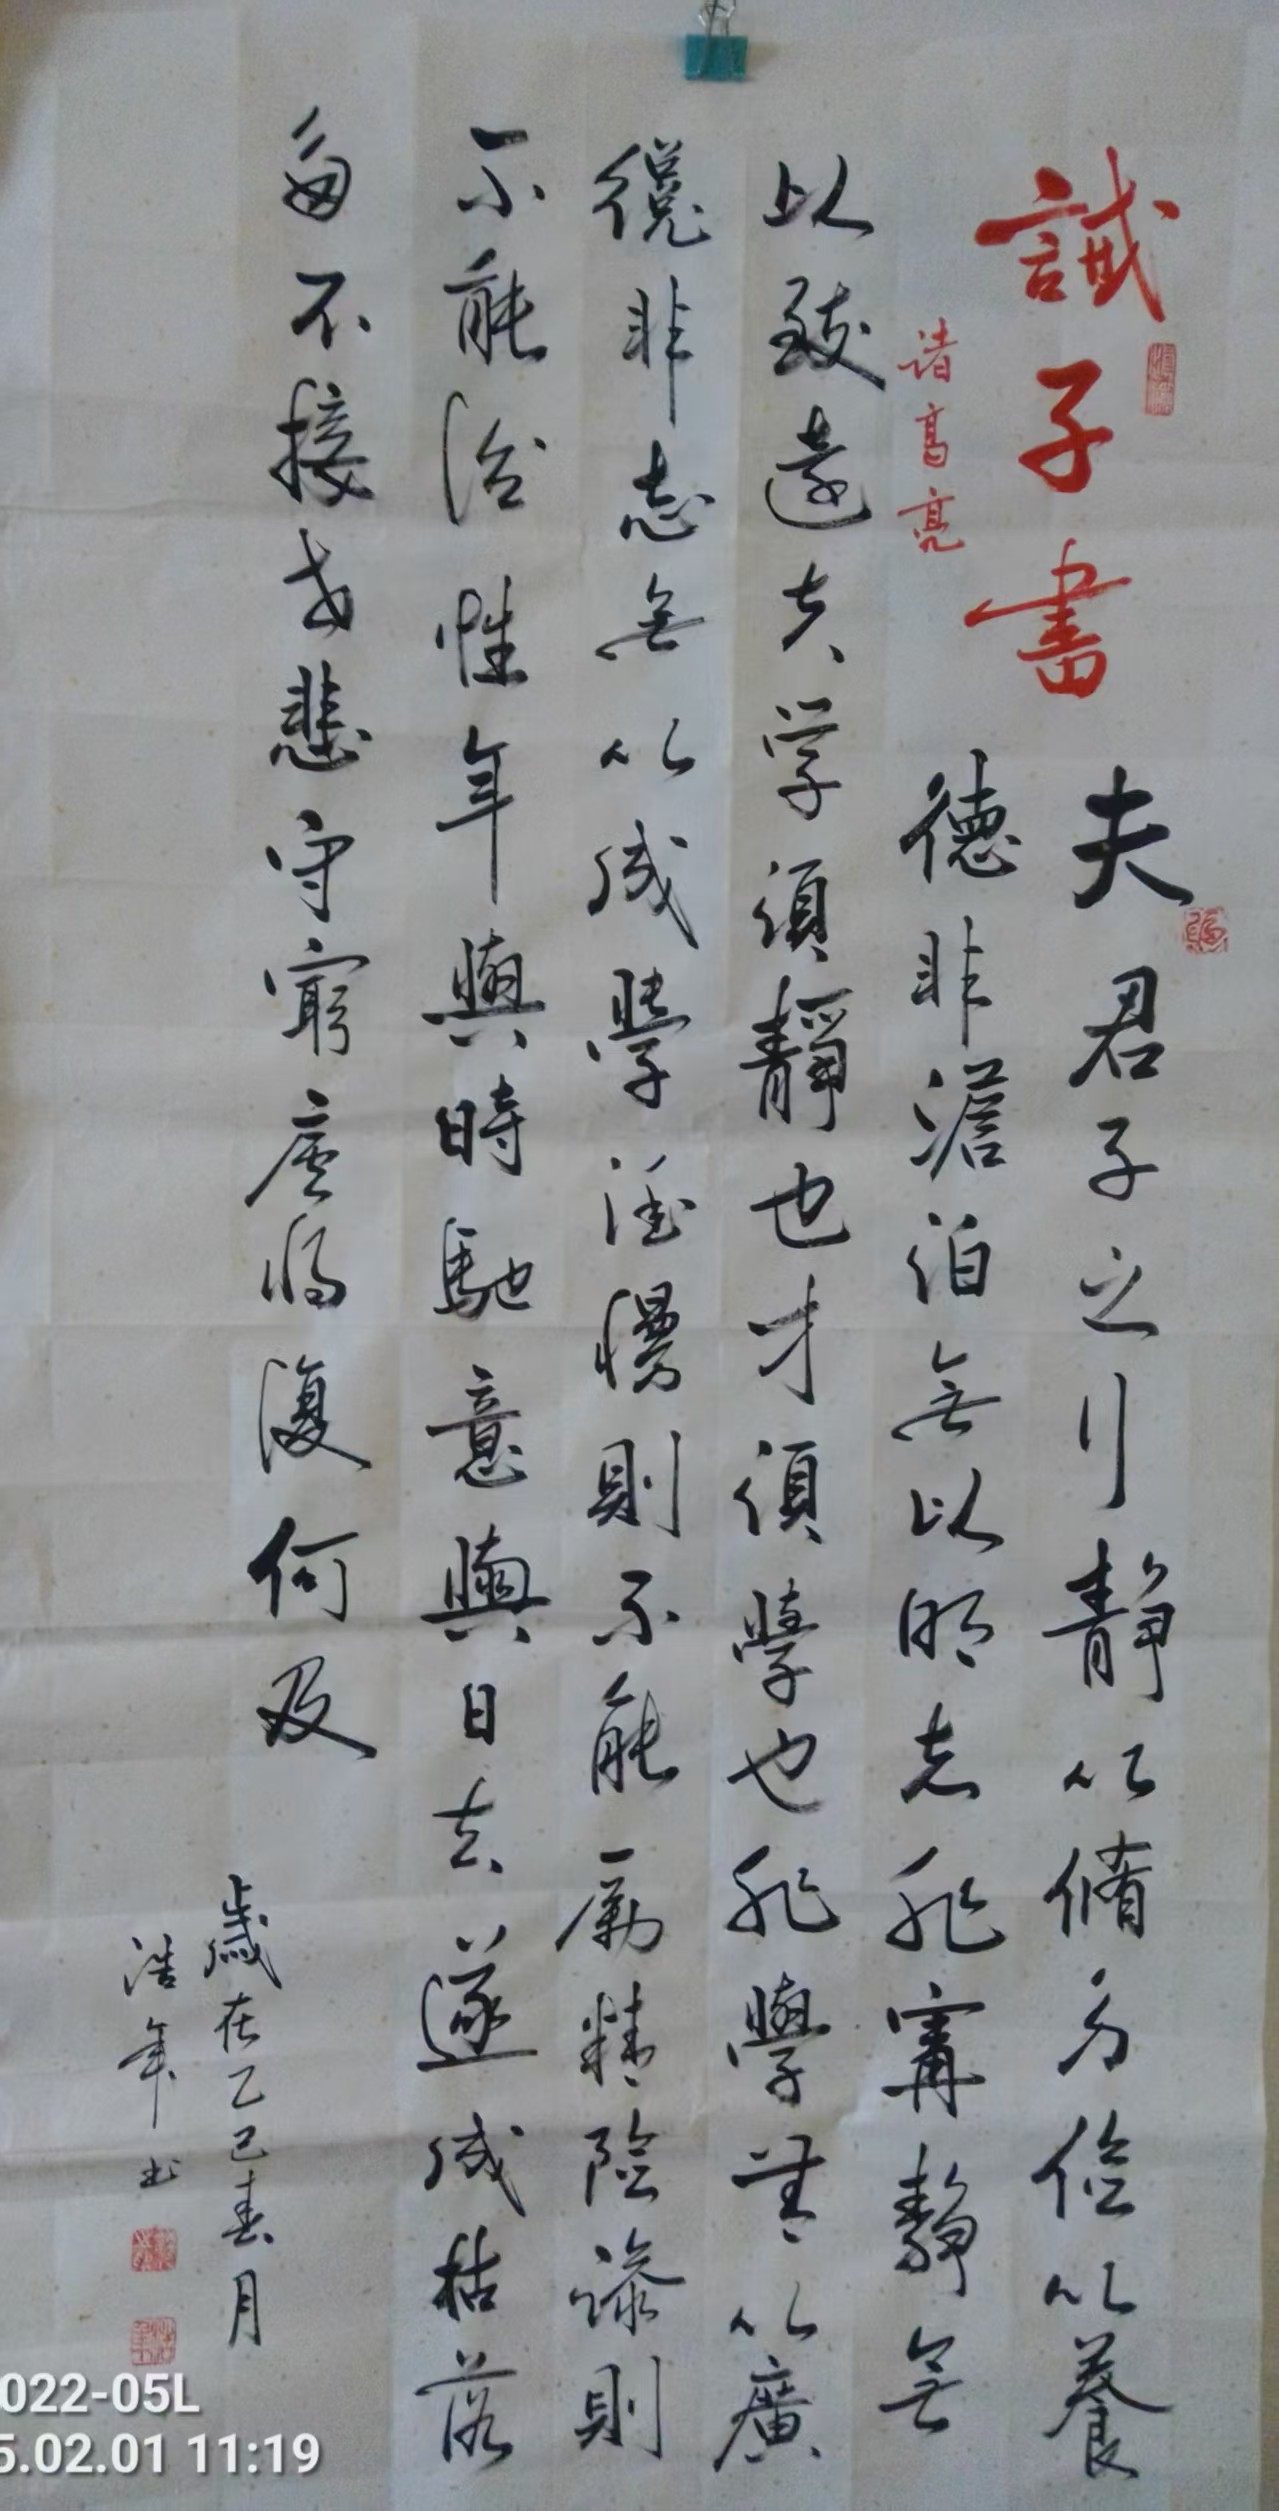 誡子書
诸葛亮
夫君子之行靜以脩身儉以養
德非澹泊無以明志非寧靜無
以致遠夫学須靜也才須學也非學無以廣
才非志無以成學淫慢則不能勵精險躁則
不能治性年與時馳意與日去遂成枯落
多不接世悲守窮廬將復何及
歲在乙巳春月
浩年书
022-05L
5.02.01 11:19